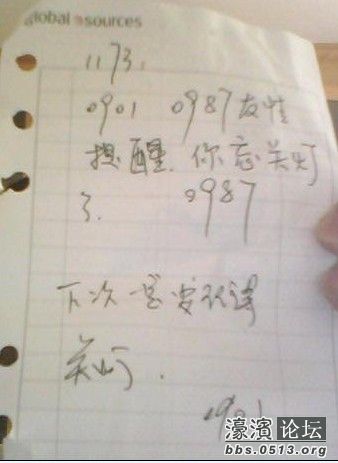 global sources
1173:
0901 0987友性
提醒.你忘关灯
了. 0987
下次一定要记得
关灯.
0901
濠濱论坛
bbs.0513.org